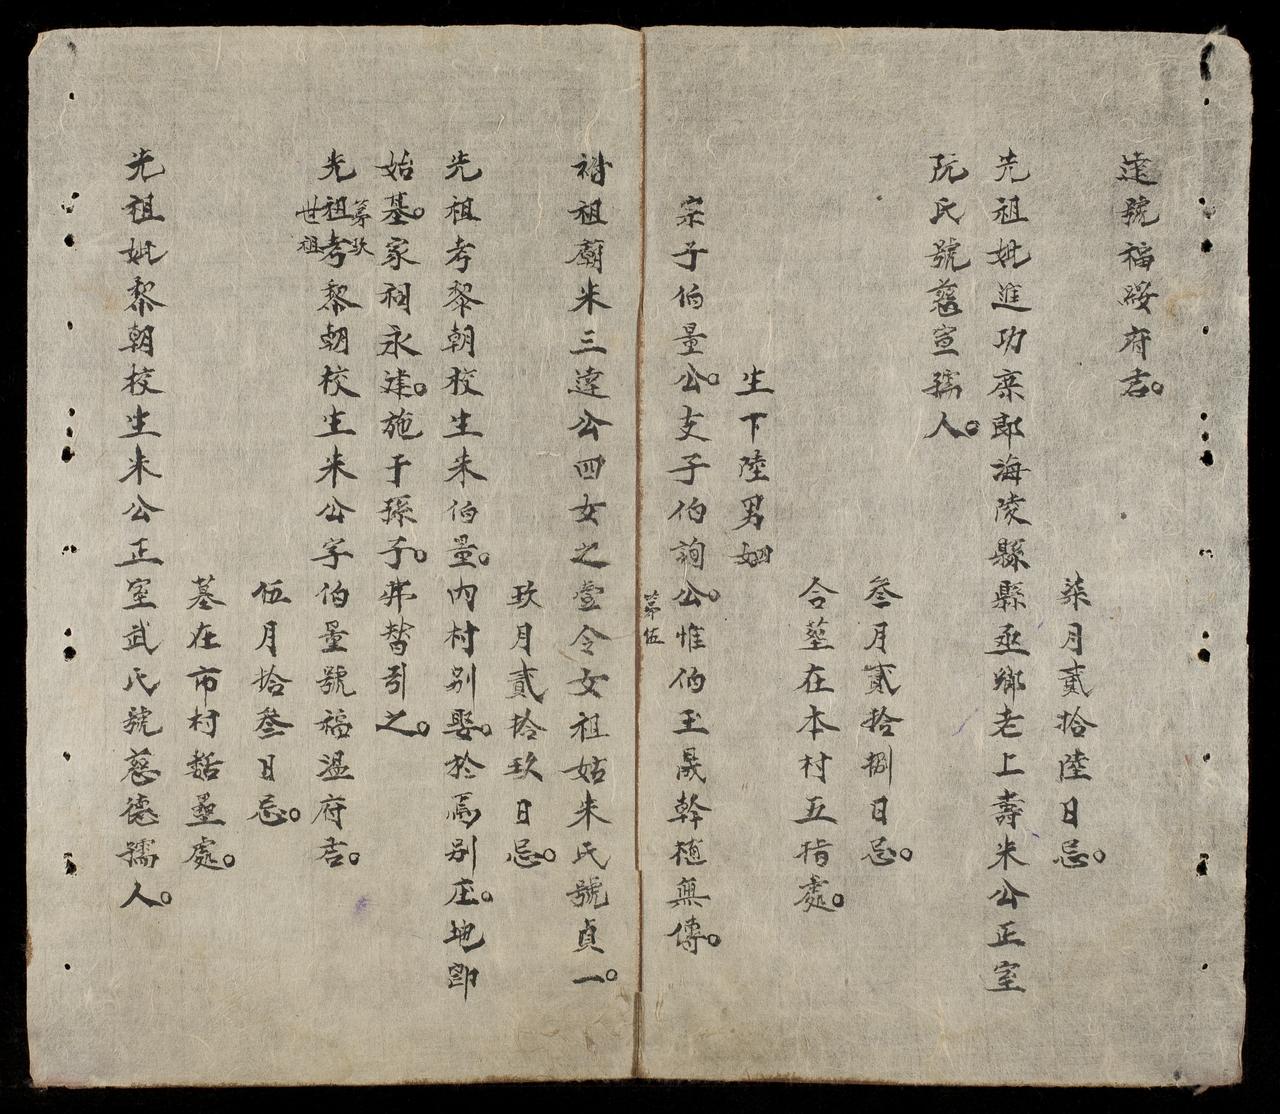 達號福綏府君。
柒月貳拾陸日忌。
先祖妣進功庶郎海陵縣縣丞鄉老上壽朱公正室
阮氏號慈宣孺人。
叁月貳拾捌日忌。
合墓在本村五指處。
生下陸男女四
宗子伯量公。支子伯詢公。惟伯玉晟幹植無傳。
第伍
祔祖廟朱三達公四女之壹令女祖姑朱氏號貞一。
玖月貳拾玖日忌。
先祖考黎朝校生朱伯量。內村別娶。於焉別庄。地即
始基。家祠永建。施于孫子。弗替引之。
第玖
先祖考黎朝校生朱公字伯量號福溫府君。
世祖
伍月拾叁日忌。
墓在市村處。
先祖妣黎朝校生朱公正室武氏號慈德孺人。